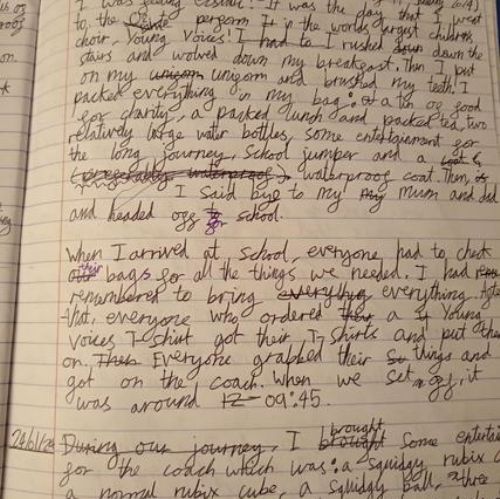 I was feeling It was the day that I went
to the perform It in the worlds largest childrens
choir, Young Voices! I had to I rushed down down the
stairs and wolved down my breakfast. Then I put
on my unigorm unigorm and brushed my teeth. I
packed everything in my bag: a tin of food
for charity, a packed lunch and packed tea, two
relatively large water bottles, some entertaienment for
the long journey, School jumper and a coat
(preferably waterproof) waterproof coat. Then,
I said bye to my my mum and dad
and headed off to for school.
When I arrived at school, everyone had to check
our their bags for all the things we needed. I had
remembered to bring everything everything.
that, everyone who ordered their a Young
Voices T-shirt got their T-shirts and put them
on. Then Everyone grabbed their things and
got on the coach. When we set off, it
was around 12 09:45.
24/01/24 During our journey, I brought brought Some
for the coach which was: a squidgy rubix
a normal rubix cube, a squidgy ball, three